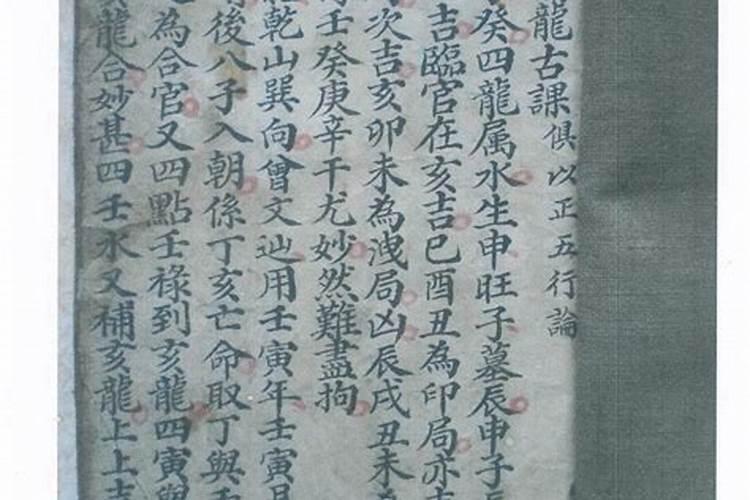 龍古課俱以正五行論
癸四龍属水生申旺子墓辰申子
吉臨官在亥吉巳酉丑為印局亦
次吉亥卯未為洩局凶辰戌丑未
壬癸庚辛干尤妙然難盡拘
乾山巽向曾文辿用壬寅年壬寅月
後八子入朝係丁亥亡命取丁與壬
為合官又四點壬祿到亥龍四寅與
龍合妙甚四壬水又補亥龍上上吉